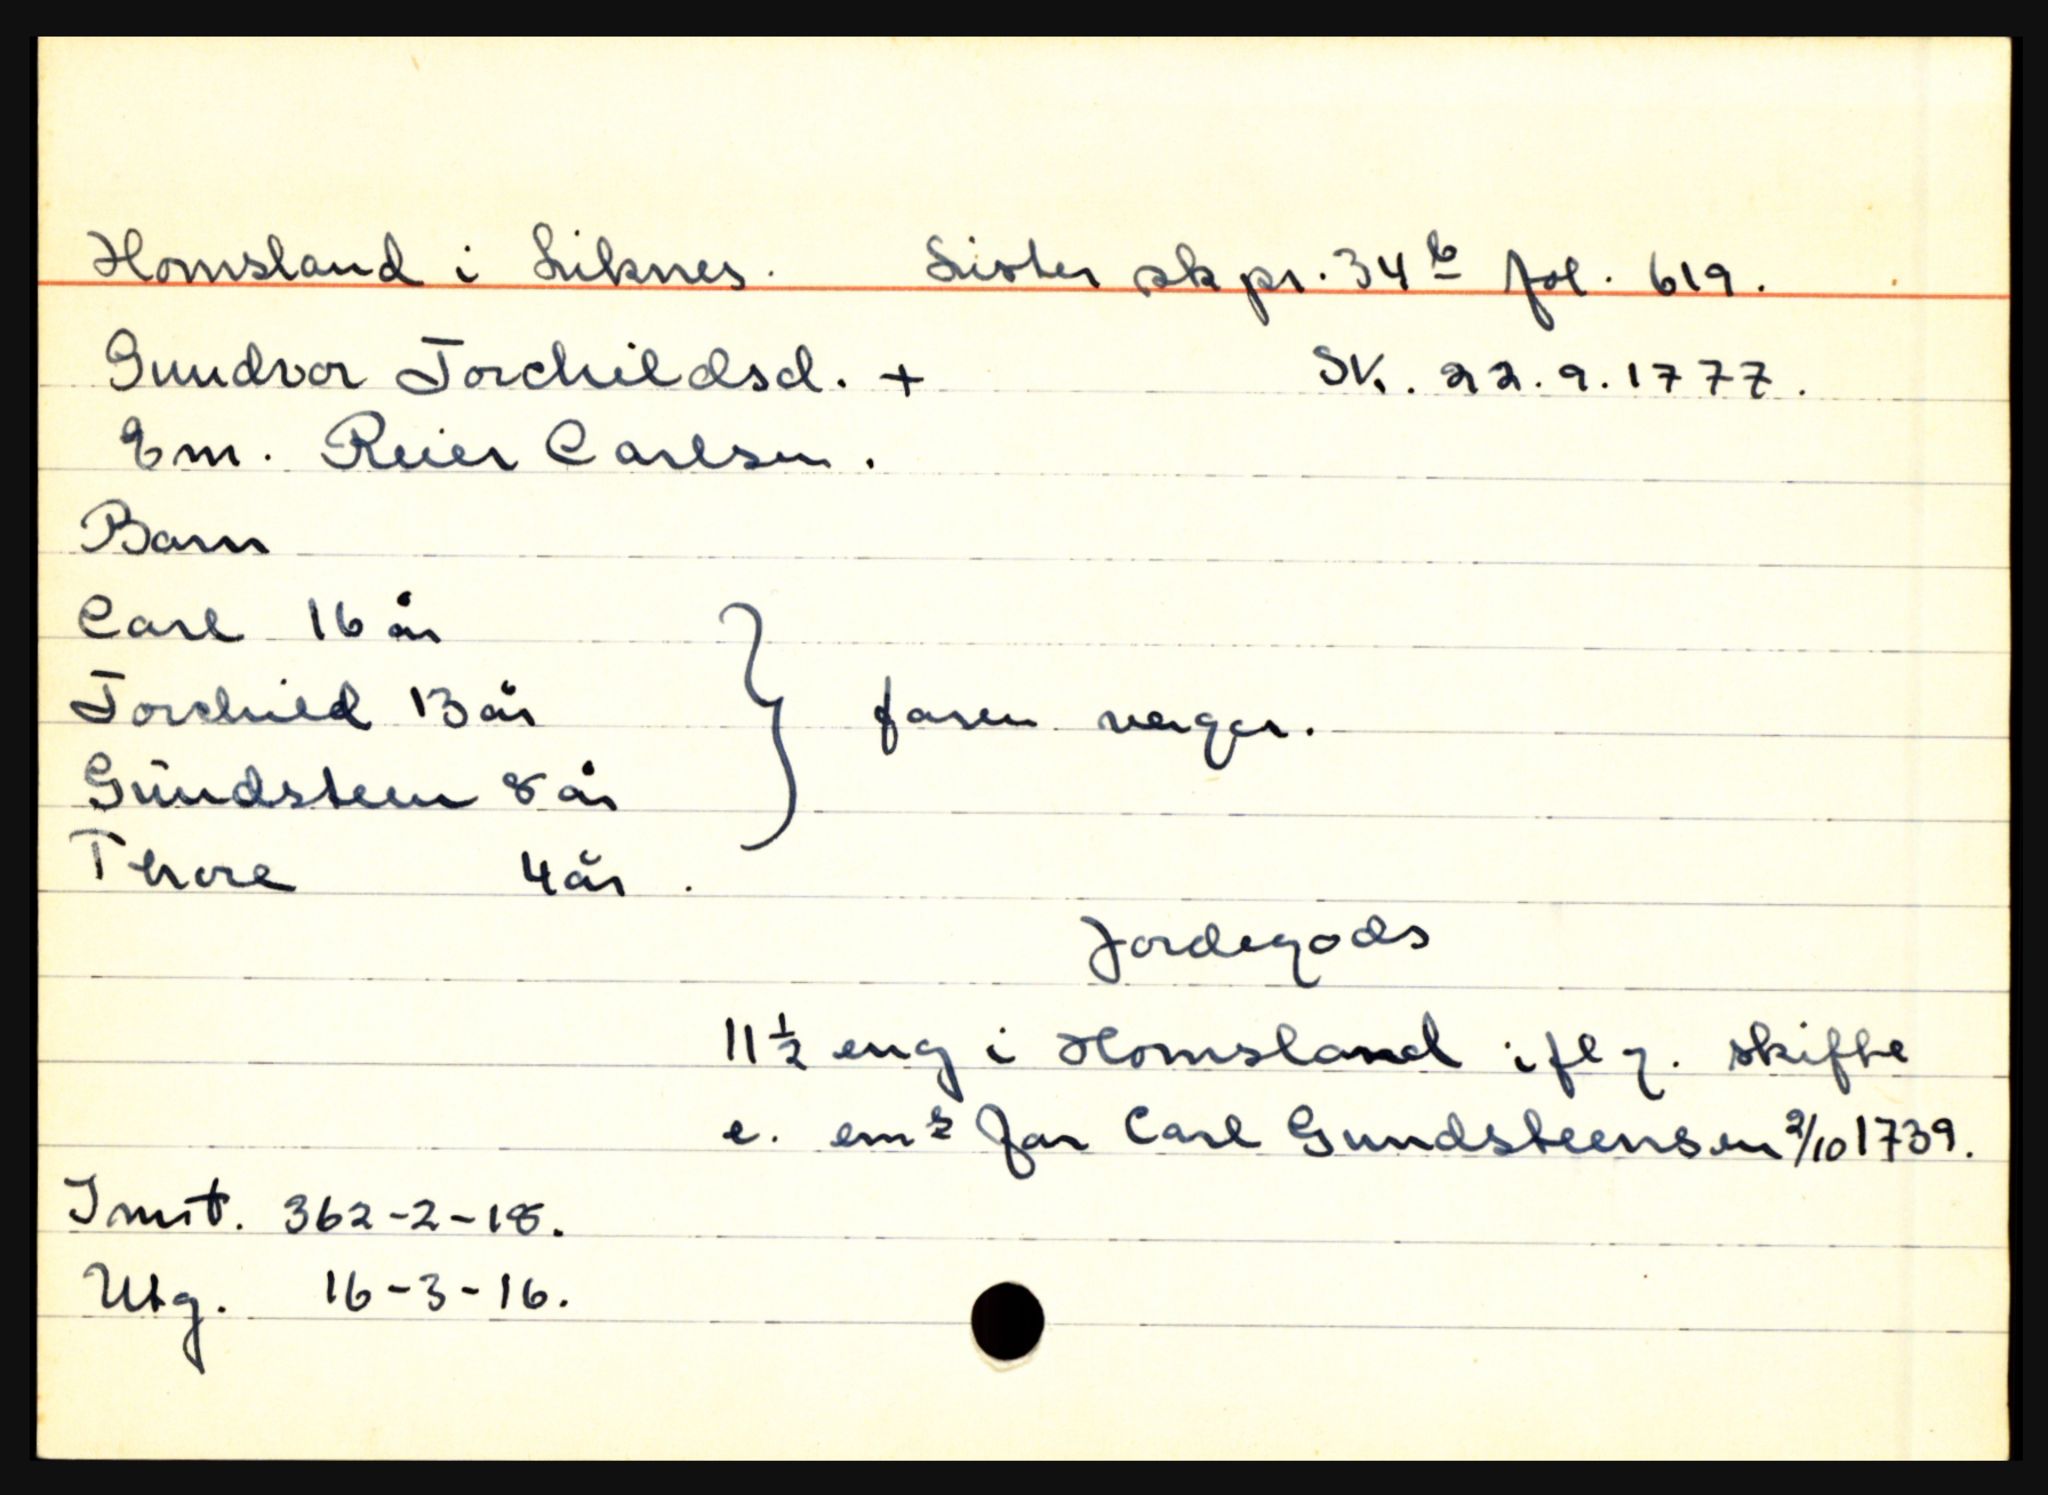 Homsland i Liknes. Lister sk pr. 34 b fol. 619.
Gundvor Torchildsd. + SK. 22.9.1777.
Em. Reier Carlsen.
Barn
Carl 16 år
Torchild 13 år
faren verger.
Gundsteen 8 år
Thore 4 år.
Jordegods
11 ½ eng i Homsland iflg. skifte
e. ems far Carl Gundsteensen 2/10 1739.
Innt. 362-2-18.
Utg. 16-3-16.